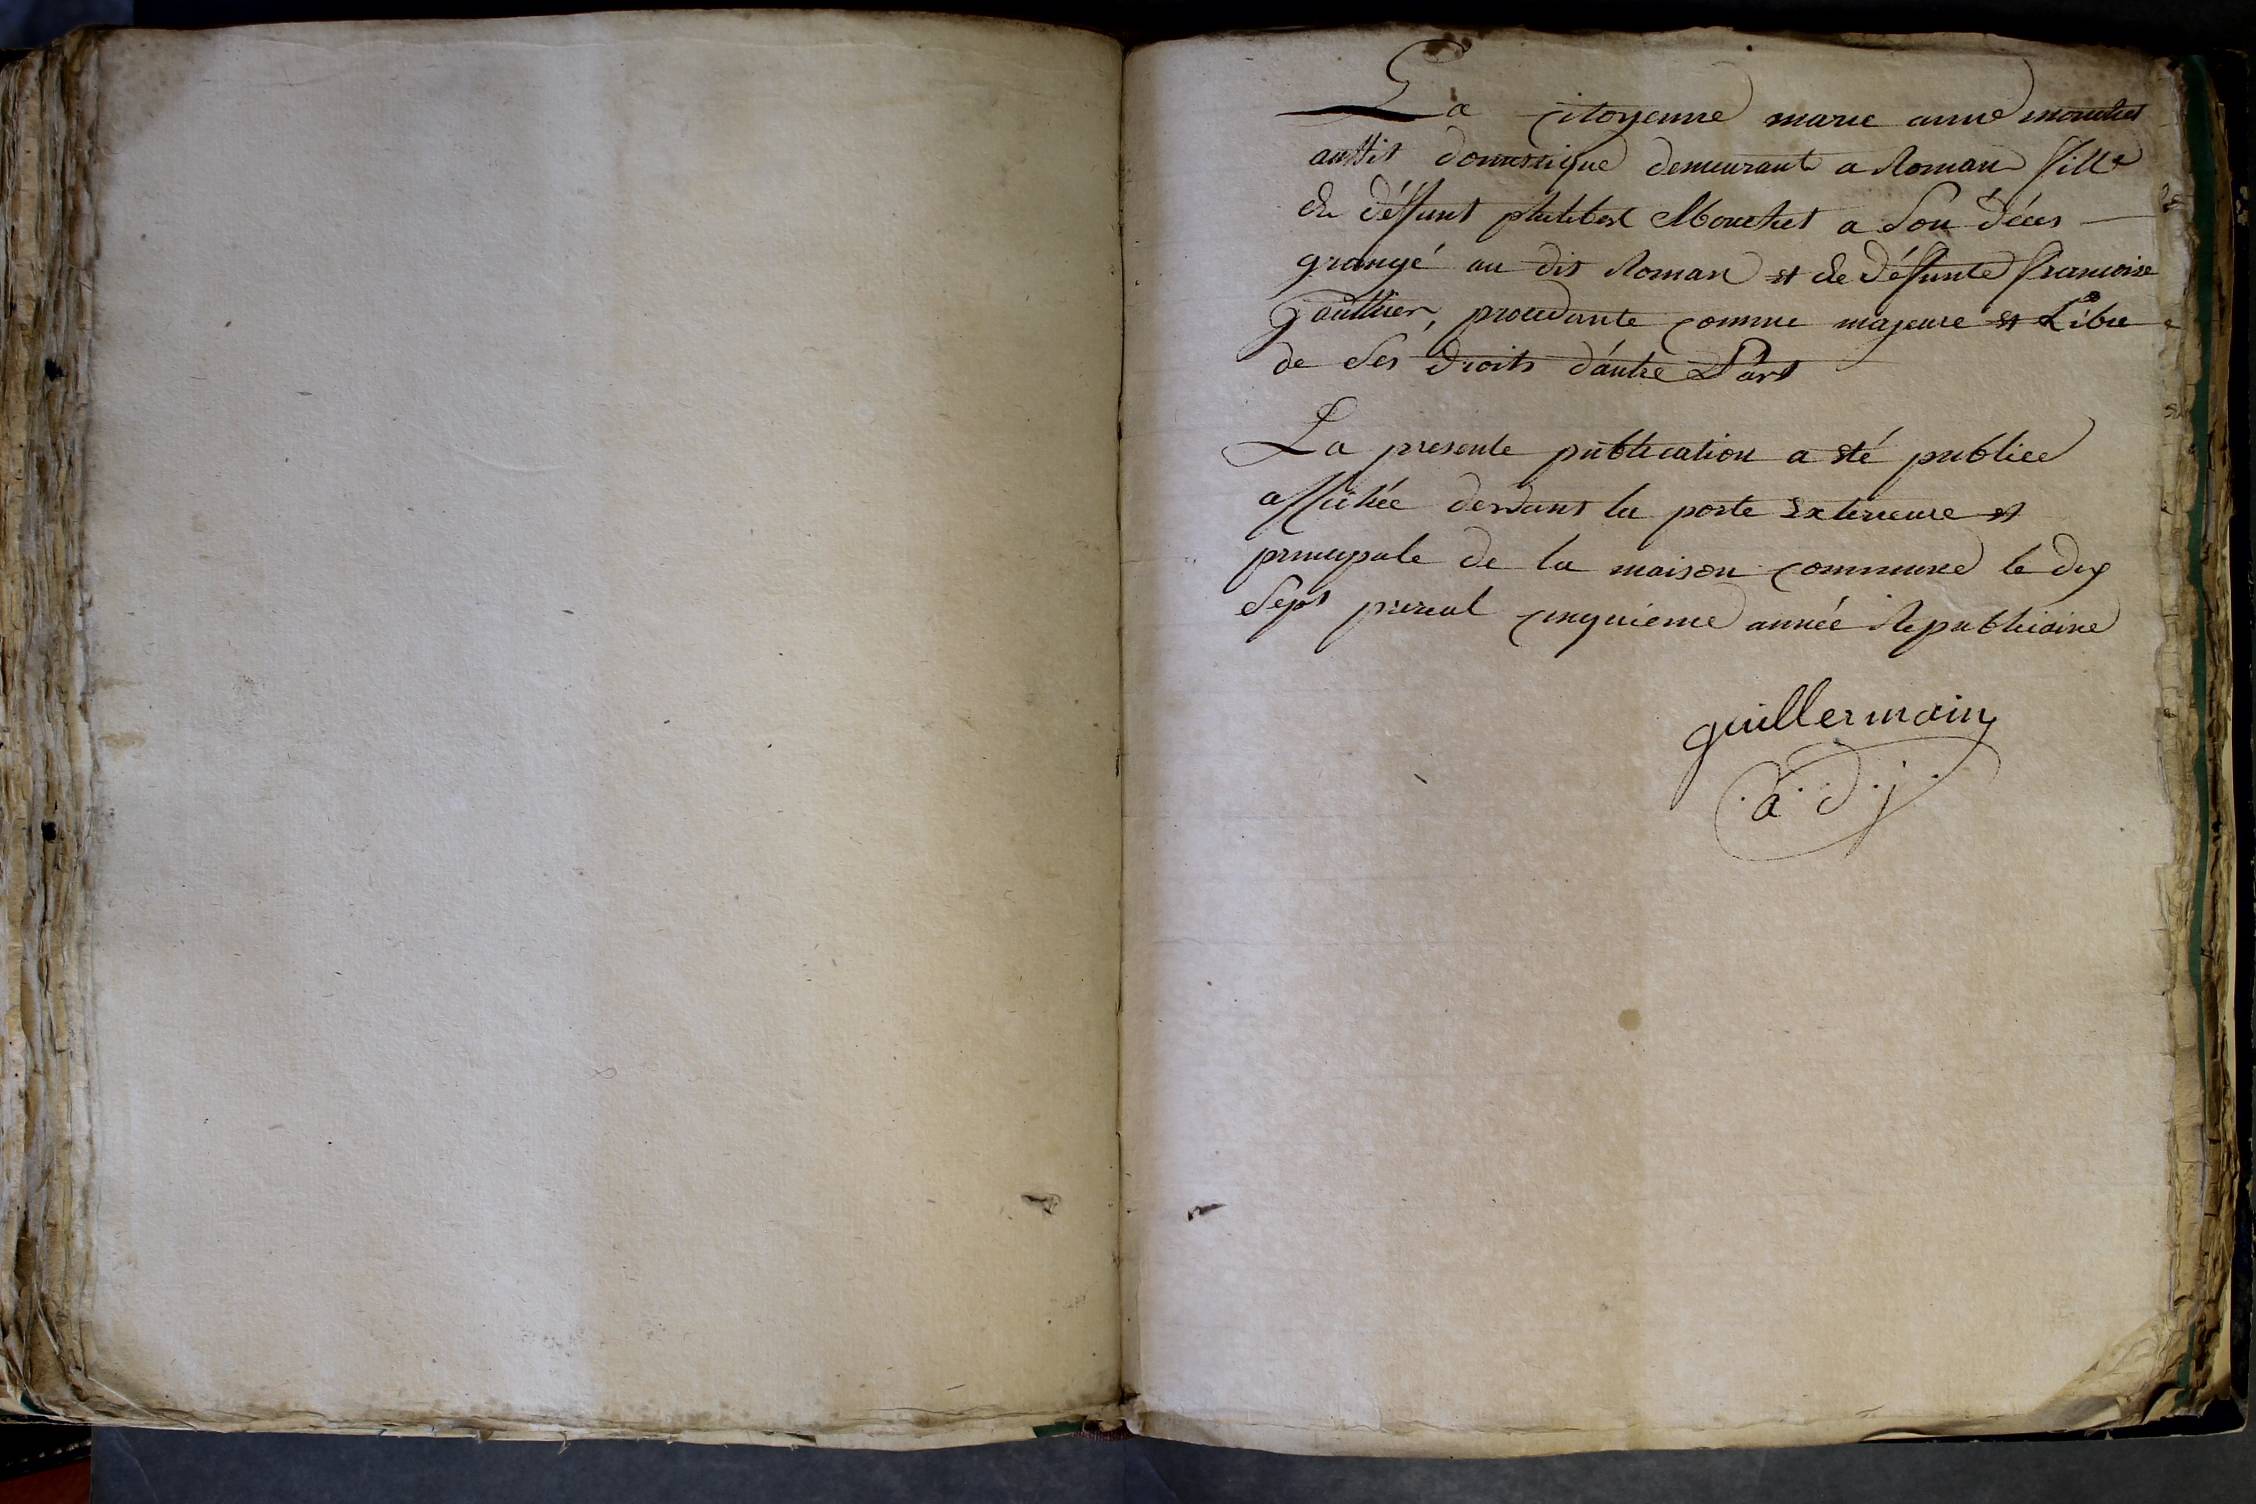 La citoyenne marie anne mouchet
aussit domestique demeurant a Roman fille
de déffunt philibert Mouchet a Son décès
grangé au dit Roman et de déffunte francoise
Gauthier, procedante comme majeure et Libre
de Ses droits d'autre Part
La presente publication a été publiee
affichée devant la porte Exterieure et
principale de la maison commune le dix
Sept prerial cinquieme année Republicaine
guillermain
a.d.j.